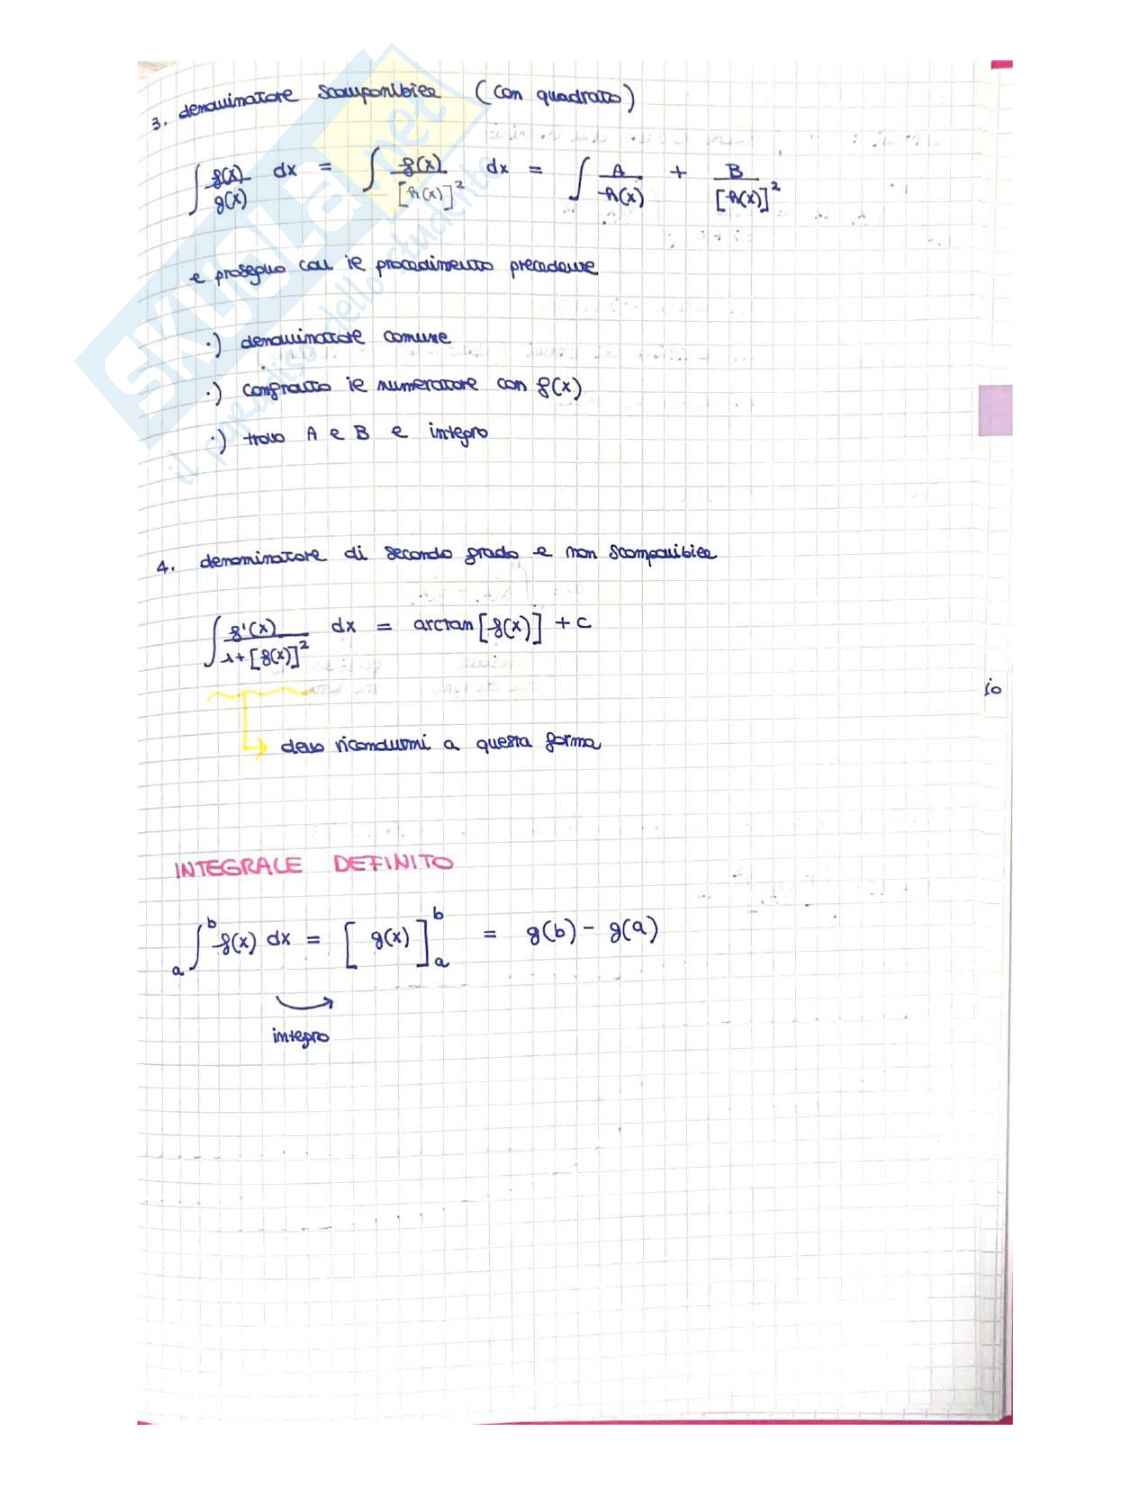 3. denominatore scomponibile (con quadrato)
∫ f(x)/g(x) dx = ∫ f(x)/[h(x)]² dx = ∫ A/h(x) + B/[h(x)]²
e proseguo con il procedimento precedente
·) denominatore comune
·) confronto il numeratore con f(x)
·) trovo A e B e integro
4. denominatore di secondo grado e non scomponibile
∫ f'(x)/1+[f(x)]² dx = arctan[f(x)] + c
io
devo ricondurmi a questa forma
INTEGRALE DEFINITO
a∫b f(x) dx = [g(x)]ba = g(b) - g(a)
integro
SKUOLA.net
il paradiso dello studente